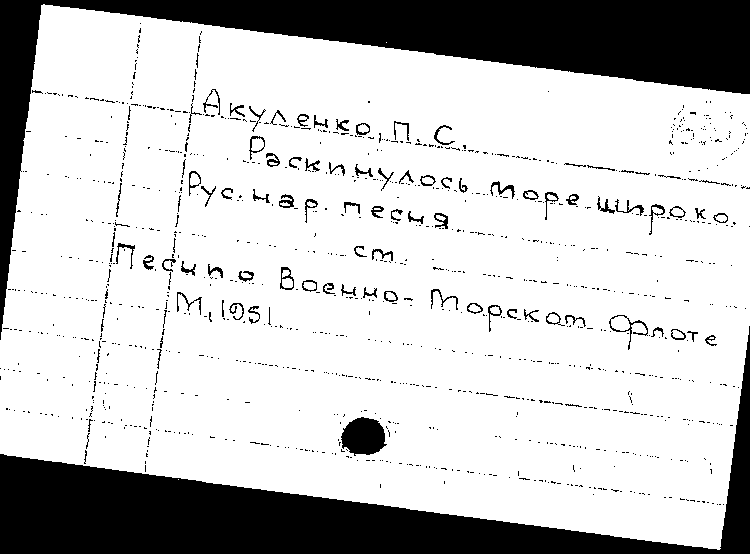 Акуленко, П. С.
Раскинулось море широко.
Рус. нар. песня
см.
Песни о Военно-Морском Флоте
М., 1951